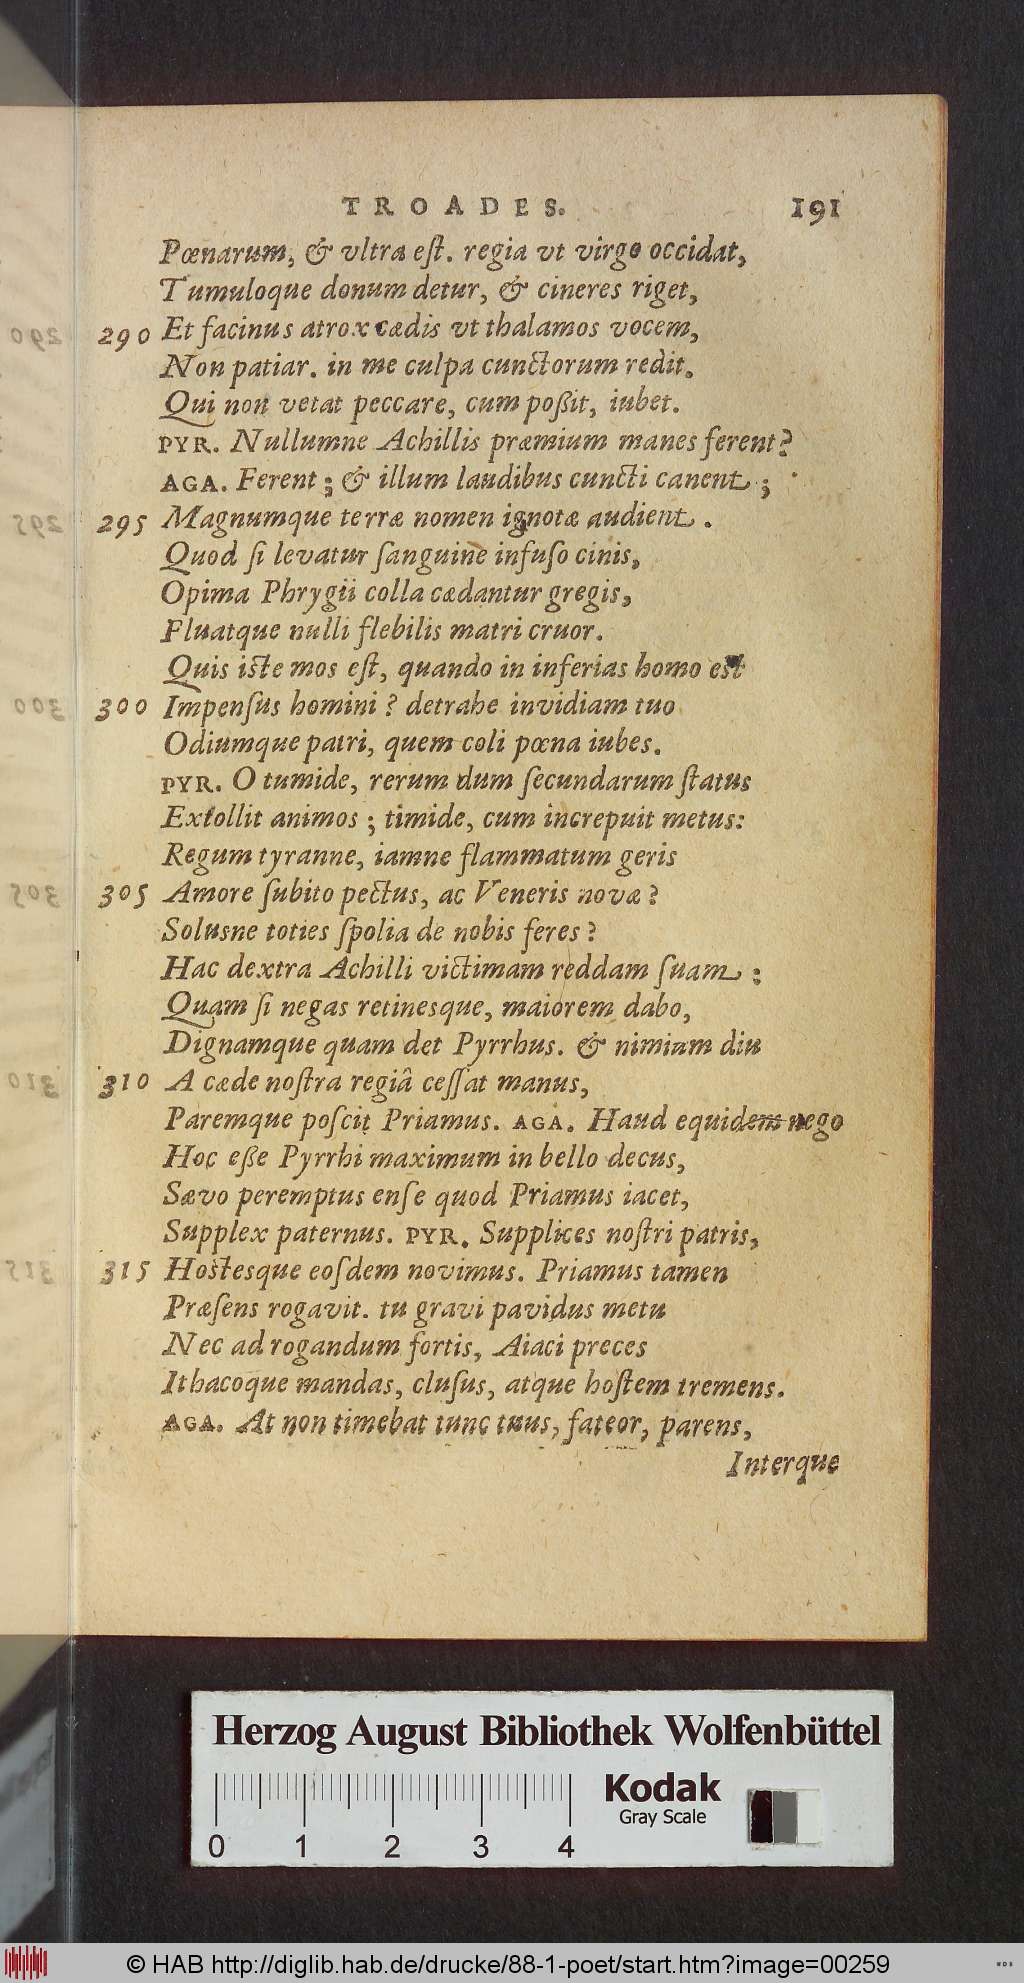 TROADES. 191
Pœnarum, & vltra eſt. regia vt virgo occidat,
Tumuloque donum detur, & cineres riget,
290 Et facinus atrox cædis vt thalamos vocem,
Non patiar. in me culpa cunctorum redit.
Qui non vetat peccare, cum poßit, iubet.
PYR. Nullumne Achillis præmium manes ferent?
AGA. Ferent; & illum laudibus cuncti canent;
295 Magnumque terræ nomen ignotæ audient.
Quod ſi levatur ſanguine infuſo cinis,
Opima Phrygii colla cædantur gregis,
Fluatque nulli flebilis matri cruor.
Quis iste mos eſt, quando in inferias homo est
300 Impenſus homini? detrahe invidiam tuo
Odiumque patri, quem coli pœna iubes.
PYR. O tumide, rerum dum ſecundarum ſtatus
Extollit animos; timide, cum increpuit metus:
Regum tyranne, iamne flammatum geris
305 Amore ſubito pectus, ac Veneris novæ?
Solusne toties ſpolia de nobis feres?
Hac dextra Achilli victimam reddam ſuam:
Quam ſi negas retinesque, maiorem dabo,
Dignamque quam det Pyrrhus. & nimium diu
310 A cæde noſtra regiâ ceſſat manus,
Paremque poſcit Priamus. AGA. Haud equidem nego
Hoc eße Pyrrhi maximum in bello decus,
Sævo peremptus enſe quod Priamus iacet,
Supplex paternus. PYR. Supplices noſtri patris,
315 Hostesque eoſdem novimus. Priamus tamen
Præſens rogavit. tu gravi pavidus metu
Nec ad rogandum fortis, Aiaci preces
Ithacoque mandas, cluſus, atque hoſtem tremens.
AGA. At non timebat tunc tuus, fateor, parens,
Interque
Herzog August Bibliothek Wolfenbüttel
Kodak
Gray Scale
0 1 2 3 4
© HAB http://diglib.hab.de/drucke/88-1-poet/start.htm?image=00259